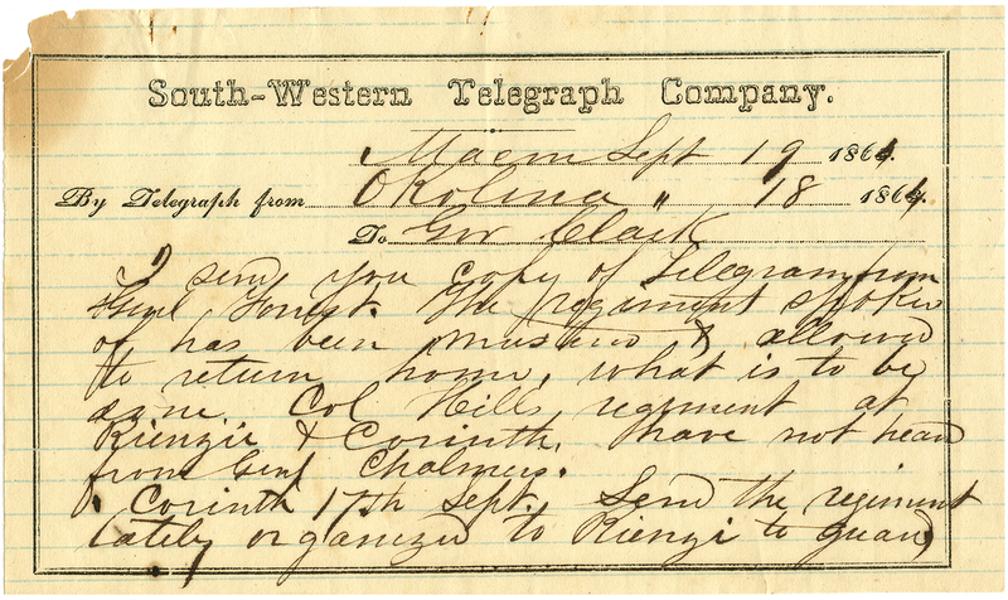 South-Western Telegraph Company.
Macon Sept 19 1864.
By Telegraph from Okolina " 18 1864.
To Gov Clark
I send you copy of Telegram from
Genl Forrest. The regiment spoken
of has been mustered & allowed
to return home, what is to be
done. Col Hills, regiment at
Rienzie & Corinth, I have not heard
from Genl Chalmers.
Corinth 17th Sept. Send the regiment
lately organized to Rienzi to guard